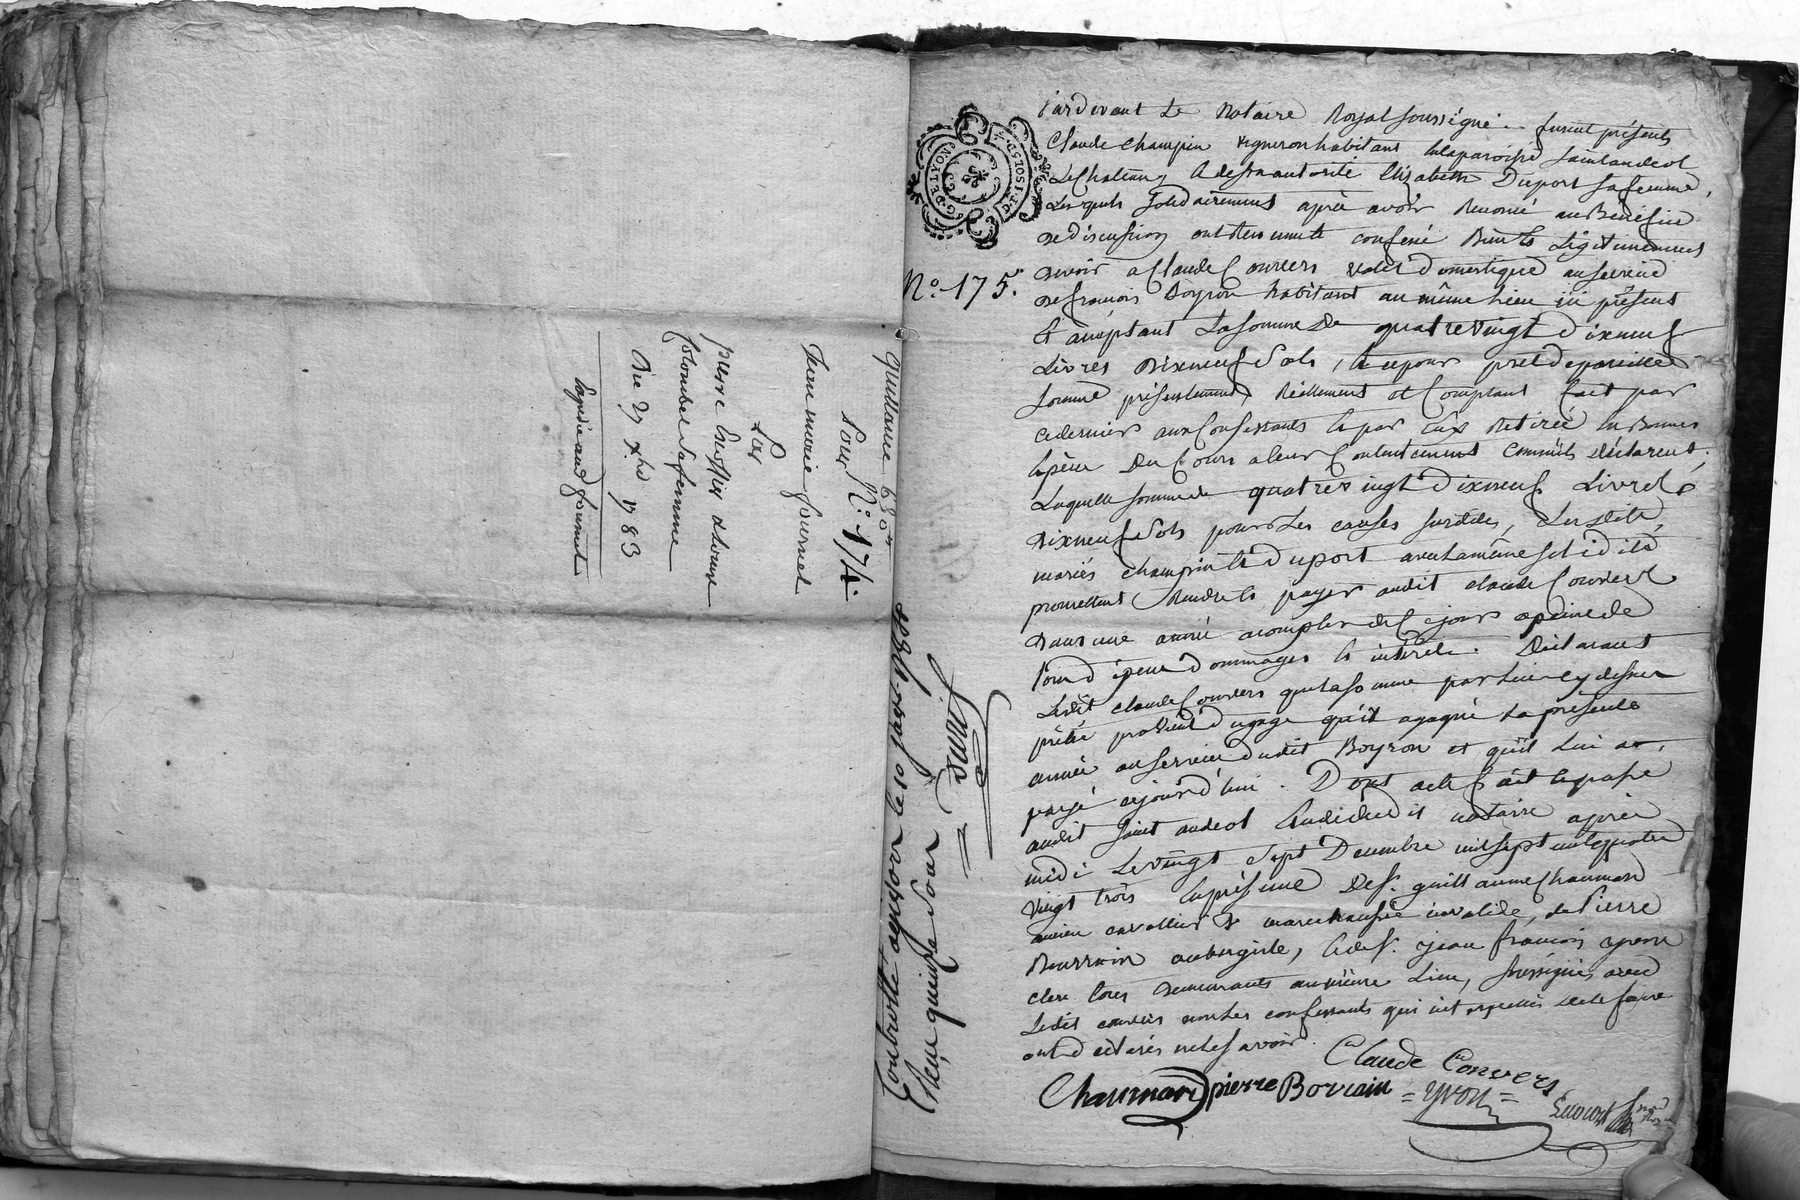 Quittance
Pour N.º 174.
Jean marie fournel
Par
pierre Escoffier
Colombet Sa femme
Du 27 Xbre 1783
Expédié aud. fournel
G. DE LYON
N.º 175.
Controllé
Reçu quinze Sous
Pardevant Le Notaire Royal soussigné .. furent présents
Claude Champin vigneron habitant
Le Chateau, & de son autorité Elizabeth Duport sa femme,
Lesquels Solidairement après avoir Renoncé au Bénéfice
de discussion ont confessé Bien & Légitimement
devoir a Claude Convers valet Domestique au service
de francois Boyron habitant au même Lieu ici présent
& acceptant La somme De quatrevingt Dixneuf
Livres Dixneuf Sols, & ce pour prêt de pareille
somme présentement, Réellement et Comptant fait par
ce dernier aux Confessants & par Eux Retirée En Bonnes
Espèces Du Cours a leur Contentement Comme ils déclarent.
Laquelle somme de quatrevingt Dixneuf Livres
Dixneuf Sols pour Les causes susdites, Lesdits
mariés Champin & Duport avec la même solidité
promettent Rendre & payer audit Claude Convers
Dans une année a compter de ce jour a peine de
tous dépens Dommages & intérêts. Déclarant
Ledit Claude Convers que La somme par Lui cy dessus
prêtée provient Du gage qu'il a gagné La présente
année au service dudit Boyron et qu'il Lui a
payé cejourd'hui. Dont acte fait & passé
audit Saint andeol Etude Dudit notaire après
midi Le vingt Sept Decembre mil sept cent quatre
vingt trois En présence De Sr. guillaume Chaumard
ancien cavallier de marechaussée invalide, de Pierre
Bourrain aubergiste, & de Sr. jean francois yvon
clerc tous demeurants au même Lieu, soussignés avec
Ledit convers non Les confessants qui
ont déclarés ne le savoir.
Claude Convers
Chaumard pierre Borrain = yvon =